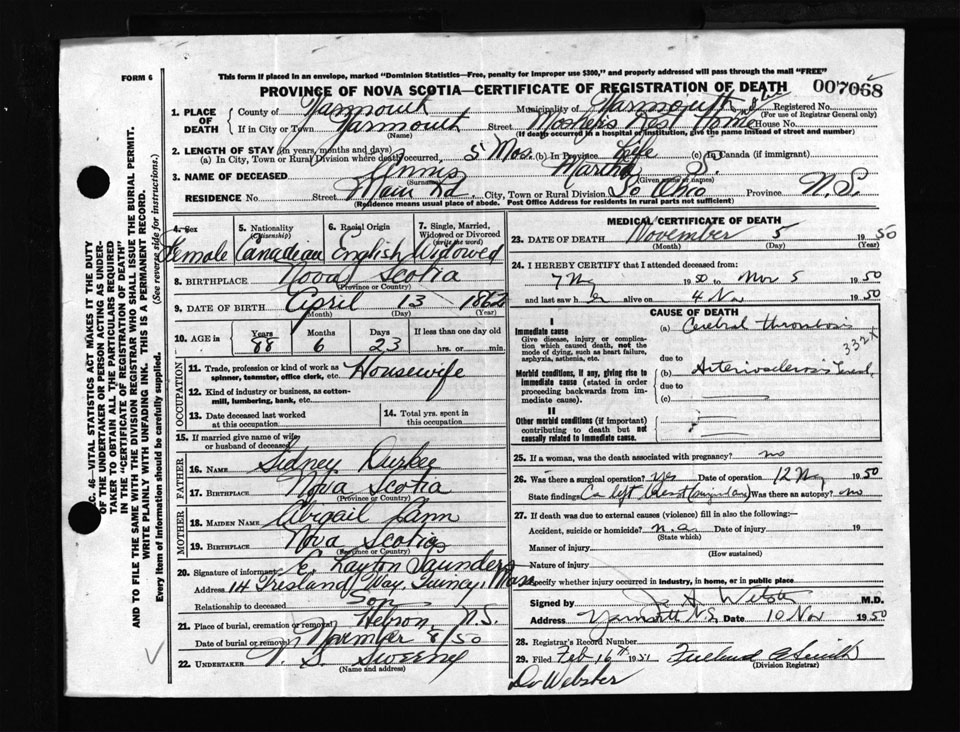 FORM 6
This form if placed in an envelope, marked "Dominion Statistics—Free, penalty for improper use $300," and properly addressed will pass through the mail "FREE"
PROVINCE OF NOVA SCOTIA—CERTIFICATE OF REGISTRATION OF DEATH 007068
1. PLACE OF DEATH
County of Yarmouth Municipality of Yarmouth Registered No.
(For use of Registrar General only)
If in City or Town Yarmouth Street Rest Home House No.
(Name) (If death occurred in a hospital or institution, give the name instead of street and number)
2. LENGTH OF STAY (in years, months and days)
(a) In City, Town or Rural Division where death occurred, 5 Mos. (b) In Province Life (c) In Canada (if immigrant)
3. NAME OF DECEASED Annis Martha S.
(Surname) (Given name or names)
RESIDENCE No. Street Main Rd. City, Town or Rural Division So Ohio Province N.S.
(Residence means usual place of abode. Post Office Address for residents in rural parts not sufficient)
4. Sex 5. Nationality (Citizenship) 6. Racial Origin 7. Single, Married, Widowed or Divorced (write the word)
Female Canadian English Widowed
8. BIRTHPLACE Nova Scotia
(Province or Country)
9. DATE OF BIRTH April 13 1862
(Month) (Day) (Year)
10. AGE in Years Months Days If less than one day old
88 6 23 hrs. or min.
OCCUPATION
11. Trade, profession or kind of work as spinner, teamster, office clerk, etc. Housewife
12. Kind of industry or business, as cotton-mill, lumbering, bank, etc.
13. Date deceased last worked at this occupation
14. Total yrs. spent in this occupation
15. If married give name of wife or husband of deceased
FATHER
16. Name Sidney Durkee
17. Birthplace Nova Scotia
(Province or Country)
MOTHER
18. Maiden Name Abigail
19. Birthplace Nova Scotia
(Province or Country)
20. Signature of informant E. Layton Saunders
Address 14 Way, Mass
Relationship to deceased Son
21. Place of burial, cremation or removal Hebron, N.S.
Date of burial or removal November 8/50
22. UNDERTAKER V. S. Sweeny
(Name and address)
MEDICAL CERTIFICATE OF DEATH
23. DATE OF DEATH November 5 1950
(Month) (Day) (Year)
24. I HEREBY CERTIFY that I attended deceased from:
7 1950 to Nov 5 1950
and last saw her alive on 4 Nov 1950
CAUSE OF DEATH
I
Immediate cause
Give disease, injury or complication which caused death, not the mode of dying, such as heart failure, asphyxia, asthenia, etc.
(a) Cerebral thrombosis
332X
due to
Morbid conditions, if any, giving rise to immediate cause (stated in order proceeding backwards from immediate cause).
(b) Arteriosclerosis
due to
(c)
II
Other morbid conditions (if important) contributing to death but not causally related to immediate cause.
25. If a woman, was the death associated with pregnancy? no
26. Was there a surgical operation? yes Date of operation 12 1950
State findings Ca left breast Was there an autopsy? no
27. If death was due to external causes (violence) fill in also the following:—
Accident, suicide or homicide? n.a. Date of injury 19
(State which)
Manner of injury
(How sustained)
Nature of injury
Specify whether injury occurred in industry, in home, or in public place
Signed by M.D.
Address Yarmouth N.S. Date 10 Nov 1950
28. Registrar's Record Number
29. Filed Feb 16th 1951 Smith
(Division Registrar)
Dr Webster
SEC. 46—VITAL STATISTICS ACT MAKES IT THE DUTY OF THE UNDERTAKER OR PERSON ACTING AS UNDERTAKER TO OBTAIN ALL THE PARTICULARS REQUIRED IN THE "CERTIFICATE OF REGISTRATION OF DEATH" AND TO FILE THE SAME WITH THE DIVISION REGISTRAR WHO SHALL ISSUE THE BURIAL PERMIT.
WRITE PLAINLY WITH UNFADING INK. THIS IS A PERMANENT RECORD.
Every item of information should be carefully supplied. (See reverse side for instructions.)